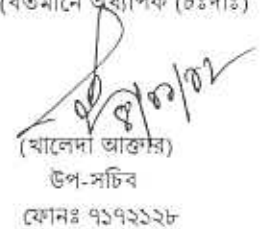 (বর্তমানে অধ্যাপক (চঃদাঃ)
(খালেদা আক্তার)
উপ-সচিব
ফোনঃ ৭১৭২১২৮